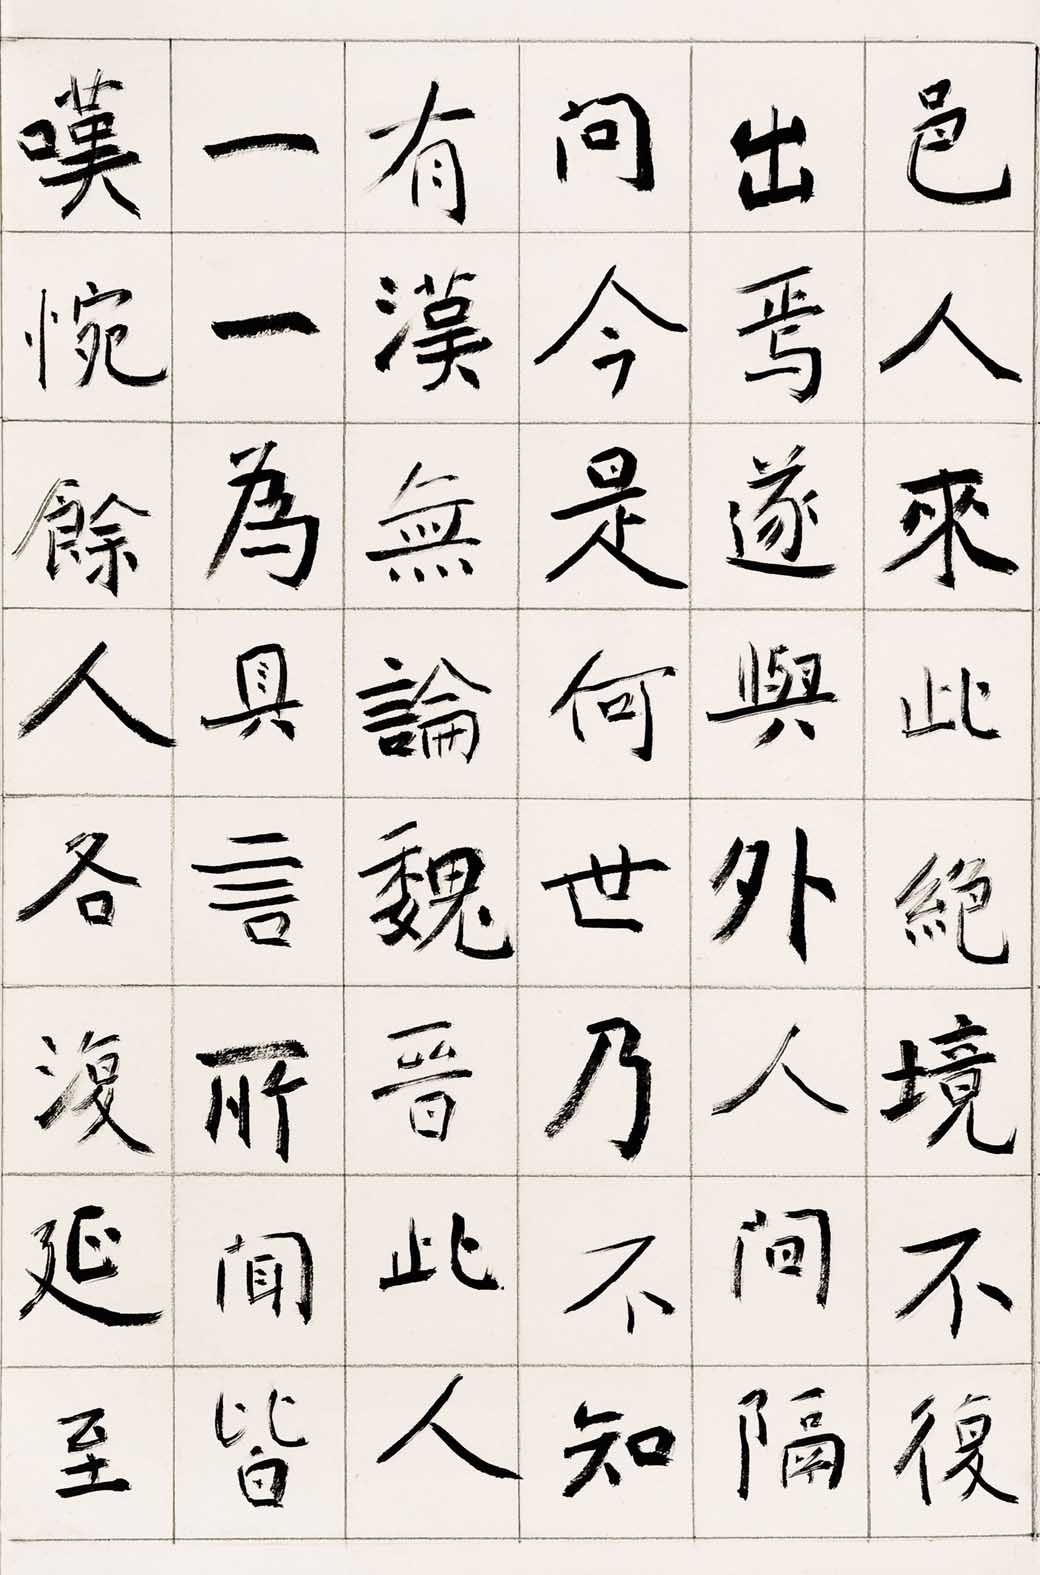 邑人來此絕境不復
出焉遂與外人間隔
問今是何世乃不知
有漢無論魏晉此人
一一為具言所聞皆
嘆惋餘人各復延至